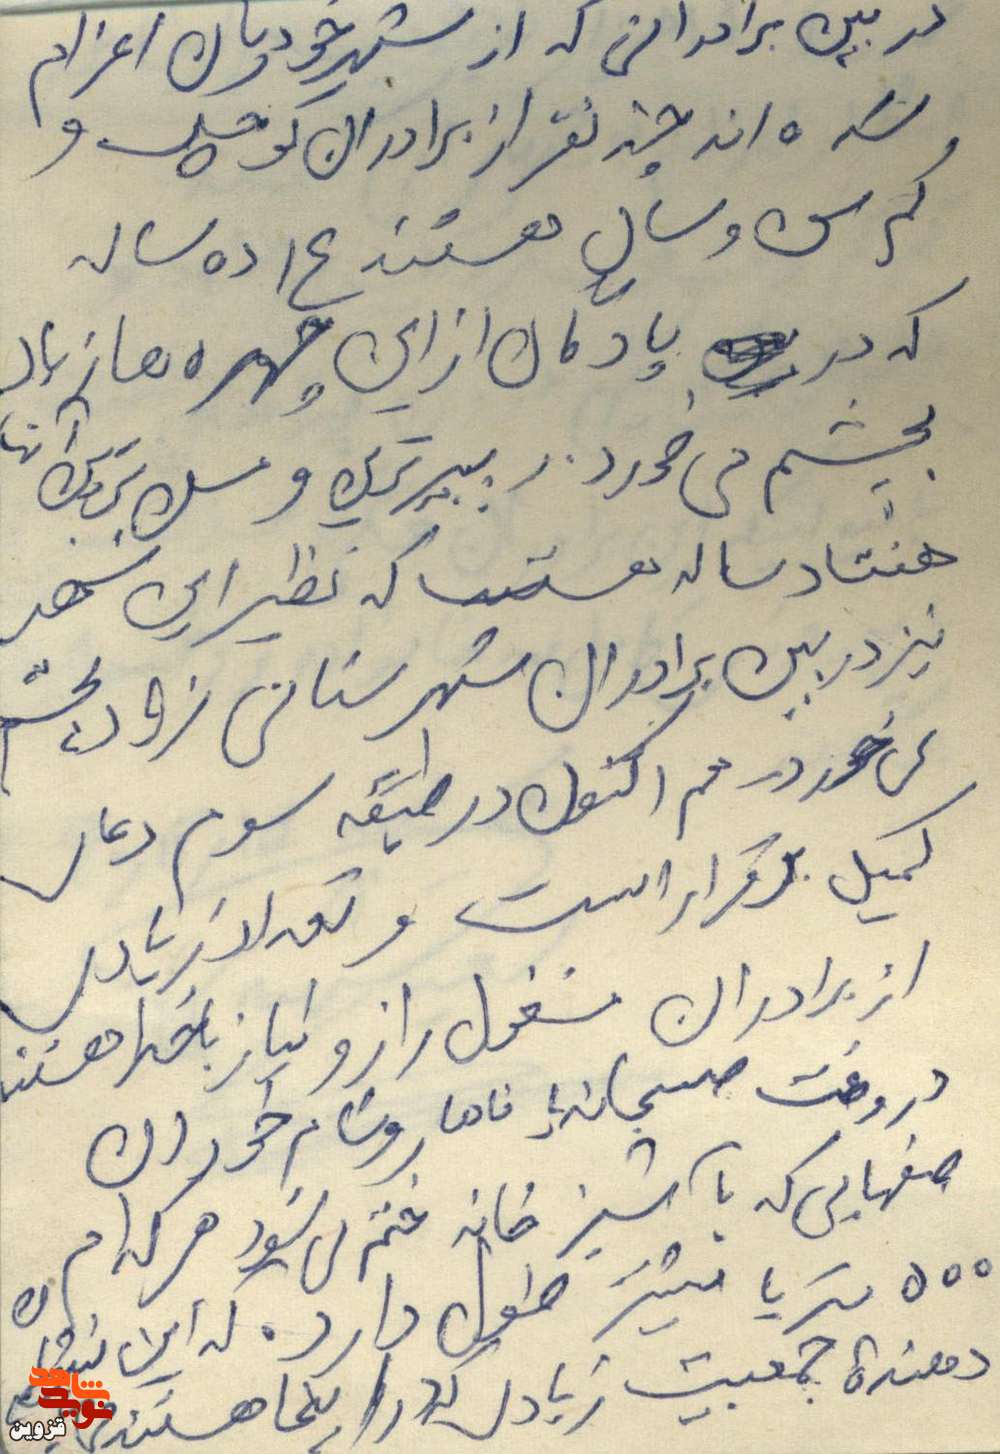 در بین برادرانی که از شهر خودمان اعزام
شده اند چند نفر از برادران کوچک و
کم سن و سال هستند ۱۴ ده ساله
که در پادگان از این چهره ها زیاد
بچشم می خورد. پیرترین و مسن ترین آنها
هفتاد ساله هستند که نظیر این شهر
نیز در بین برادران شهرستانی زیاد بچشم
می خورد. هم اکنون در طبقه سوم دعای
کمیل برقرار است و تعداد زیادی
از برادران مشغول راز و نیاز با خدا هستند
در وقت صبحانه یا ناهار و شام خوردن
صفهایی که با آشپز خانه ختم می شود هر کدام
۵۰۰ متر یا بیشتر طول دارد. که این نشان
دهندهٔ جمعیت زیادی که در اینجا هستند
نوید شاهد
قزوین